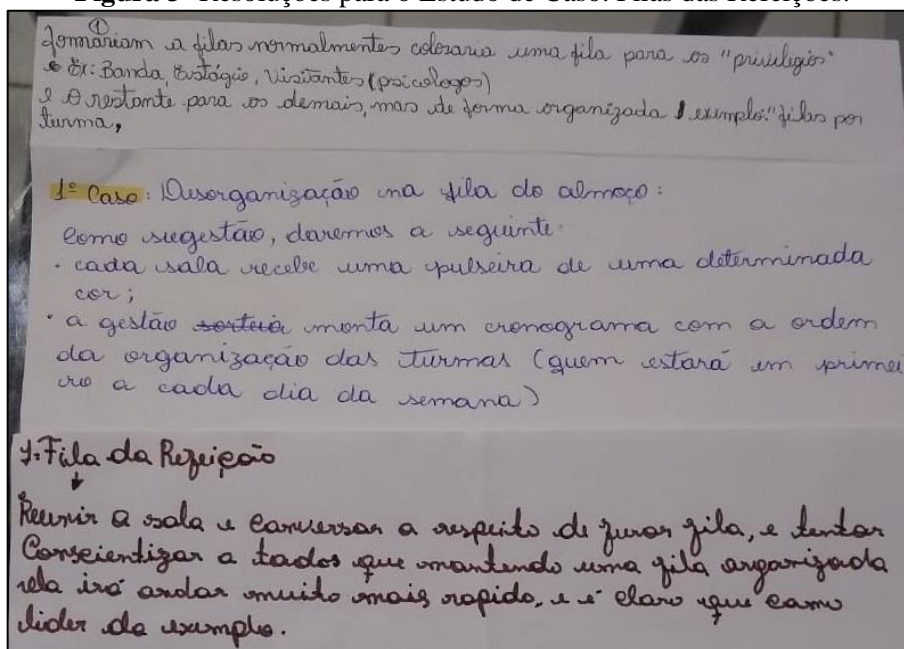 Figura 3- Resoluções para o Estudo de Caso: Filas das Refeições.
①
formariam a filas normalmentes colocaria uma fila para os "privilégios"
Ex: Banda, Estágio, Visitantes (psicologos)
e O restante para os demais, mas de forma organizada exemplo: "filas por
turma,
1º Caso: Desorganização na fila do almoço:
Como sugestão, daremos a seguinte:
· cada sala recebe uma pulseira de uma determinada
cor;
· a gestão sorteia monta um cronograma com a ordem
da organização das turmas (quem estará em primei
ro a cada dia da semana)
1. Fila da Refeição
Reunir a sala e conversar a respeito de furar fila, e tentar
Conscientizar a todos que mantendo uma fila organizada
ela irá andar muito mais rapido, e é claro que como
lider da exemplo.